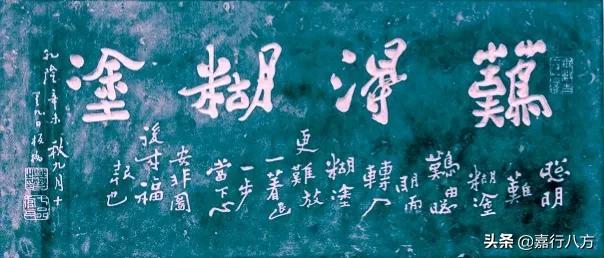 難得糊塗
聰明
難
糊塗
難由聰
明而
轉入
糊塗
更難放
一著退
一步
當下心
安非圖
後來福
報也
乾隆辛未秋九月十
有九日板橋
头条 @嘉行八方